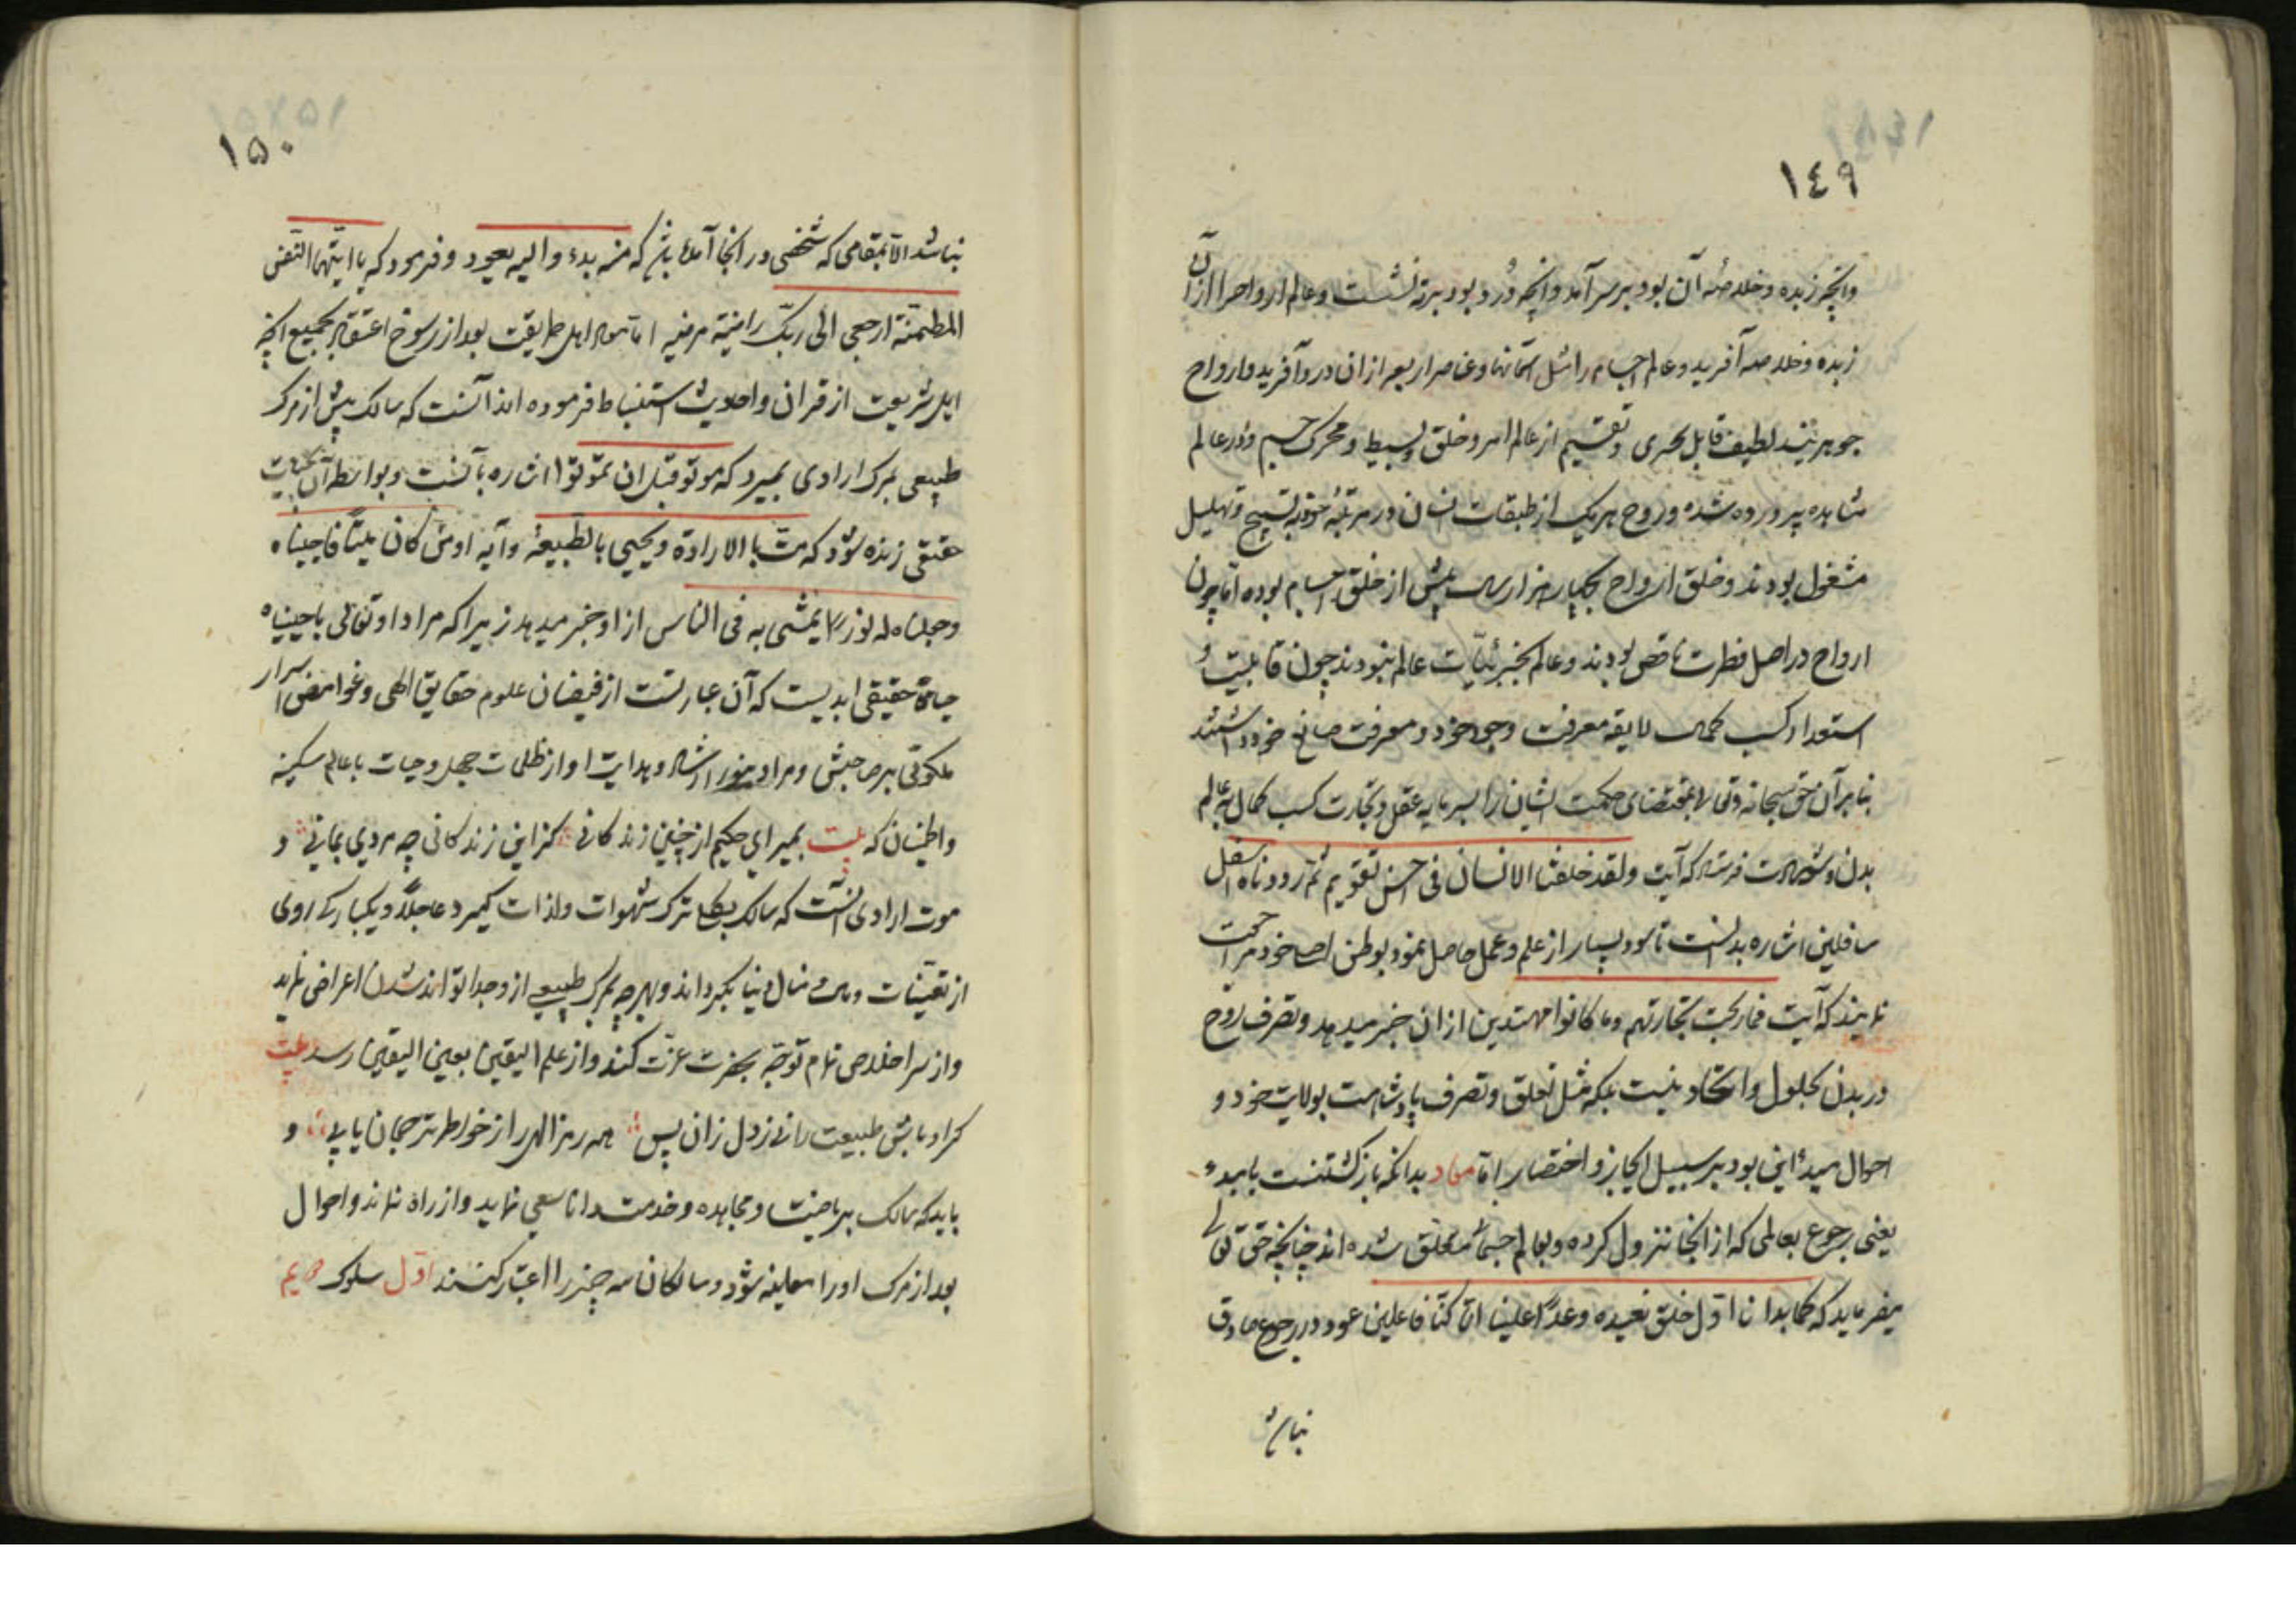 ١٤٩
وانچه زبده و خلاصهٔ آن بود بر سر آمد وانچه دُرد بود برته نشست و عالم ارواح را ازان
زبده و خلاصه آفرید و عالم اجسام را مثل آسمانها و عناصر اربعه ازان درد آفرید و ارواح
جوهریند لطیف قابل تجزی و تقسیم از عالم امر و خلق و بسیط و محرک جسم و در عالم
مشاهده پرورده شده و روح هر یک از طبقات انسان در مرتبهٔ خود به تسبیح و تهلیل
مشغول بودند و خلق ارواح بچهار هزار سال پیش از خلق اجسام بوده اما چون
ارواح در اصل فطرت ناقص بودند و عالم بجزئیّات عالم نبودند چون قابلیت و
استعداد کسب کمالات لایقه معرفت وجود خود و معرفت صانع خود داشتند
بنابر آن حق سبحانه وتعالی بمقتضای حکمت ایشان را بسرمایه عقل و تجارت کسب کمال بعالم
بدن و شهادت فرستاد که آیت ولقد خلقنا الانسان فی احسن تقویم ثم رددناه اسفل
سافلین اشاره بدانست تا سود بسیار از علم و عمل حاصل نموده بوطن اصلی خود مراجعت
نمایند که آیت فما ربحت تجارتهم وما کانوا مهتدین ازان خبر میدهد و تصرف روح
در بدن بحلول و اتحاد نیست بلکه مثل تعلق و تصرف پادشاهست بولایت خود و
احوال مبدأ این بود بر سبیل ایجاز و اختصار اما معاد بدانکه بازگشتنست بامبدء
یعنی رجوع بعالمی که از انجا نزول کرده و بعالم جسمانی متعلق شده اند چنانچه حق تعالی
میفرماید که کما بدانا اوّل خلق نعیده وعدًا علینا انّا کنّا فاعلین عود و رجوع صادق
نباشد
١٥٠
نباشد الّا بمقامی که شخصی در انجا آمده باشد که منه بدء والیه یعود و فرمود که یا ایّتها النّفس
المطمئنّة ارجعی الی ربّک راضیة مرضیه امّا معاد اهل طریقت بعد از رسوخ اعتقاد بجمیع انچه
اهل شریعت از قران و احادیث استنباط فرموده اند آنست که سالک پیش از مرگ
طبیعی بمرک ارادی بمیرد که موتوا قبل ان تموتوا اشاره بآنست و بواسطه آن بحیات
حقیقی زنده شود که مت بالارادة ویحیی بالطّبیعة وآیه اومن کان میتًا فاحییناه
وجعلناه له نورًا یمشی به فی الناس ازاو خبر میدهد زیرا که مراد او تعالی باحییناه
حیاة حقیقی ابدیست که آن عبارتست از فیضان علوم حقایق الهی وغوامض اسرار
ملکوتی بر صاحبش و مراد بنور ارشاد و هدایت او از ظلمات جهل و حیات باعالم سکینه
واطمینان که بیت بمیر ای حکیم از چنین زندکانی ؞ کز این زندکانی چه مردی بمانی ؞ و
موت ارادی آنست که سالک بکل ترک شهوات و لذات گیرد عاجلًا و یکبارکی روی
از تعیّنات و مال و منال دنیا بگرداند و بهر چه بمرک طبیعی ازو جدا تواند شدن اعراض نماید
و از سر اخلاص تمام توجه بحضرت عزّت کند و از علم الیقین بعین الیقین رسد بیت
گر اوباش طبیعت را نزد دل زان پس ؞ همه رمز الهی را ز خواطر ترجمان یابی ؞ و
باید که سالک بریاضت و مجاهده و خدمت دانا سعی نماید و از راه نماند و احوال
بعد از مرگ او را معاینه شود و سالکان سه چیز را اعتبار کنند اوّل سلوک دویم